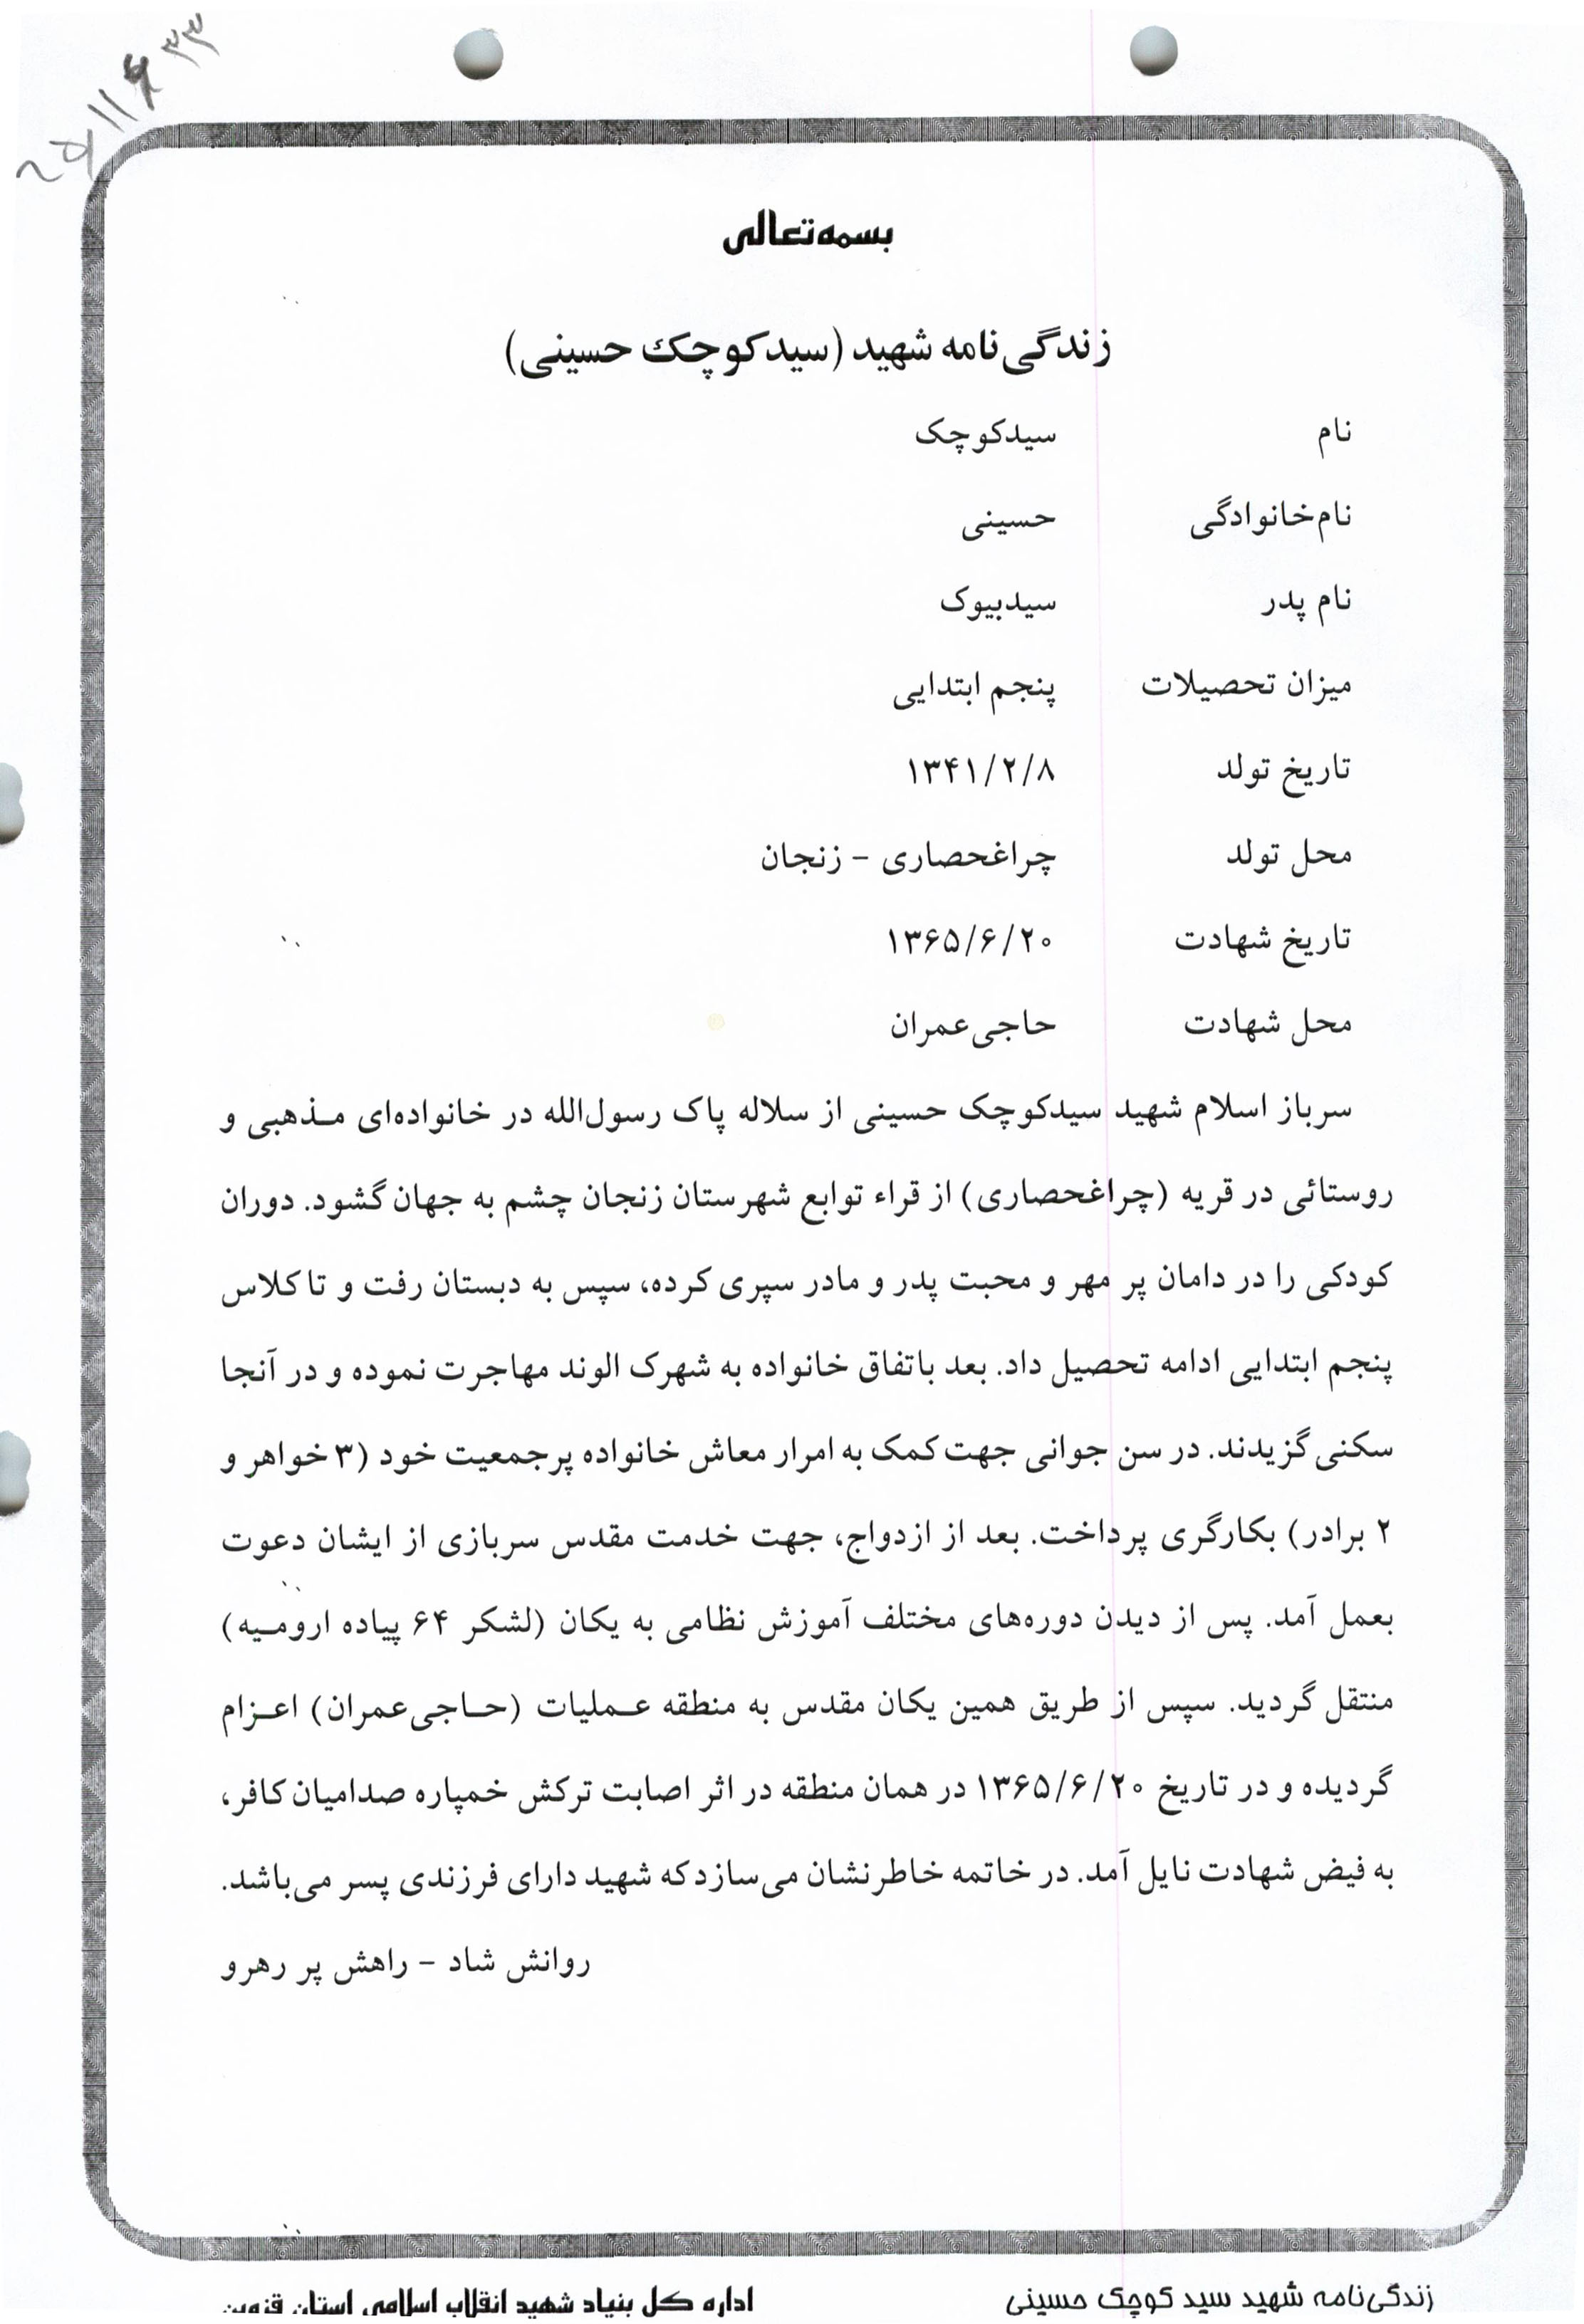 بسمه‌تعالی
زندگی‌نامه شهید (سیدکوچک حسینی)
نام سیدکوچک
نام‌خانوادگی حسینی
نام پدر سیدبیوک
میزان تحصیلات پنجم ابتدایی
تاریخ تولد ۱۳۴۱/۲/۸
محل تولد چراغحصاری – زنجان
تاریخ شهادت ۱۳۶۵/۶/۲۰
محل شهادت حاجی‌عمران
سرباز اسلام شهید سیدکوچک حسینی از سلاله پاک رسول‌الله در خانواده‌ای مـذهبی و
روستائی در قریه (چراغحصاری) از قراء توابع شهرستان زنجان چشم به جهان گشود. دوران
کودکی را در دامان پر مهر و محبت پدر و مادر سپری کرده، سپس به دبستان رفت و تا کلاس
پنجم ابتدایی ادامه تحصیل داد. بعد باتفاق خانواده به شهرک الوند مهاجرت نموده و در آنجا
سکنی گزیدند. در سن جوانی جهت کمک به امرار معاش خانواده پرجمعیت خود (۳ خواهر و
۲ برادر) بکارگری پرداخت. بعد از ازدواج، جهت خدمت مقدس سربازی از ایشان دعوت
بعمل آمد. پس از دیدن دوره‌های مختلف آموزش نظامی به یکان (لشکر ۶۴ پیاده ارومـیه)
منتقل گردید. سپس از طریق همین یکان مقدس به منطقه عـملیات (حـاجی‌عمران) اعـزام
گردیده و در تاریخ ۱۳۶۵/۶/۲۰ در همان منطقه در اثر اصابت ترکش خمپاره صدامیان کافر،
به فیض شهادت نایل آمد. در خاتمه خاطرنشان می‌سازد که شهید دارای فرزندی پسر می‌باشد.
روانش شاد – راهش پر رهرو
زندگی‌نامه شهید سید کوچک حسینی اداره کل بنیاد شهید انقلاب اسلامی استان قزوین